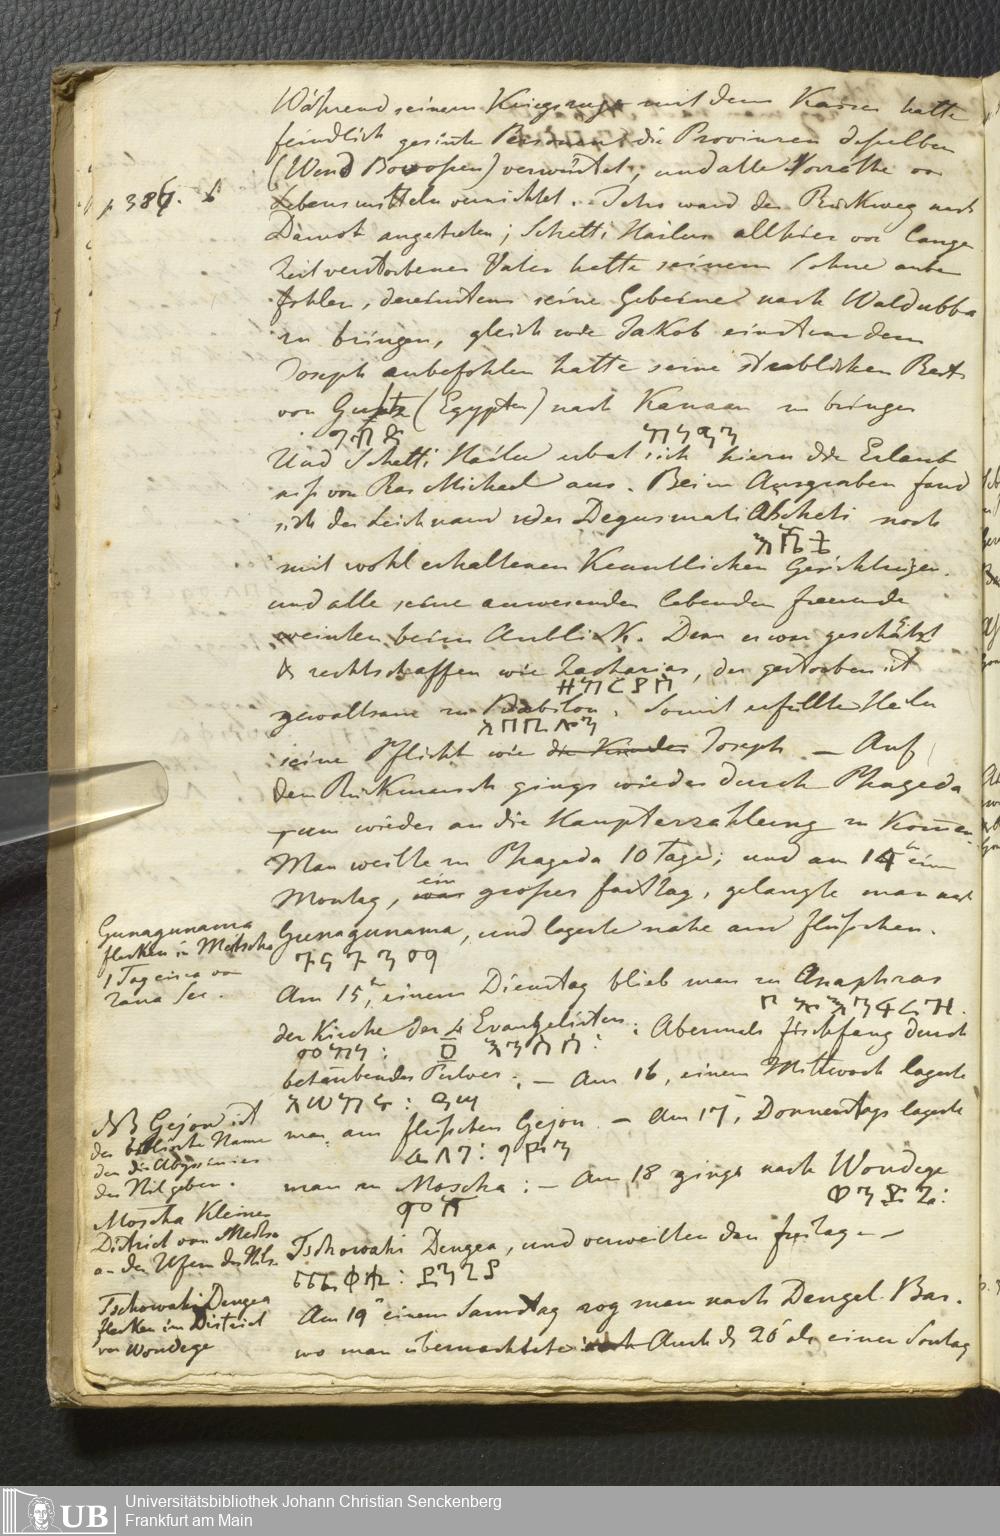 Während seinem Kriegszuge mit dem Kaiser hatte
feindlich gesinte Personen die Provinzen deselben
(Wend Bowosen) verwüstet, und alle Vorräthe von
p 386. b
Lebensmitteln vernichtet. Jetzo ward der Rückweg nach
Damot angetreten; Schetti Hailus allhier vor langer
Zeit verstorbener Vater hatte seinem Sohne anbe
fohlen, dereinstens seine Gebeine nach Waldubba
zu bringen, gleich wie Jakob einstens dem
Joseph anbefohlen hatte seine sterblichen Reste
von (Egypten) nach Kanaan zu bringen
ግብጽ ከነዓን
Und Schetti Hailu erbat sich hiezu die Erlaub
niß von Ras Michael aus. Beim Ausgraben fand
sich der Leichnam des Degusmati Abscheti noch
mit wohl erhaltenen Kenntlichen Gesichtszügen.
und alle seine anwesenden lebenden freunde
weinten beim Anblick. Denn er war geschätzt
& rechtschaffen wie Zacharias, der gestorben ist
ዘካርያስ
gewaltsam zu Babilon. Somit erfüllte Hailu
seine Pflicht wie die Kinder Joseph — Auf
dem Rückmarsch gings wieder durch Phageda
um wieder an die Haupterzählung zu Komen.
Man weilte zu Phageda 10 Tage; und am 14n ein
Montag, ein großer fasttag, gelangte man nach
Gunagunama
flecken in Metscha
1 Tag von
Zana See.
Gunagunama, und lagerte nahe am flüßchen.
ጉናጉናማ
Am 15n, einem Dienstag blieb man zu Anaphras
der Kirche der 4 Evangelisten: Abermals fischfang durch
betäubendes Pulver; — Am 16, einem Mittwoch lagerte
NB Gejon ist
der biblische Name
den die Abyssinier
dem Nil geben.
man am flüßchen Gejon — Am 17, Donnerstag lagerte
ፈለገ፡ ግዮን
man zu Moscha: — Am 18 gings nach Wondege
Moscha Kleiner
District von Metscha
an den Ufern des Nils
Tschowahi Dengea, und verweilten den freitag —
Tschowahi Dengea
flecken im District
von Wondege
Am 19n einem Samstag zog man nach Dengel Bar.
wo man übernachtete Auch d 20 als einen Sontag
Universitätsbibliothek Johann Christian Senckenberg
Frankfurt am Main
UB